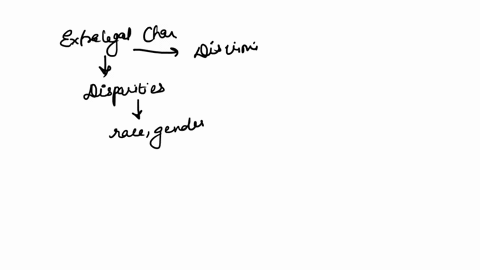 Extralegal Char
Discrimi
Disparities
race, gender